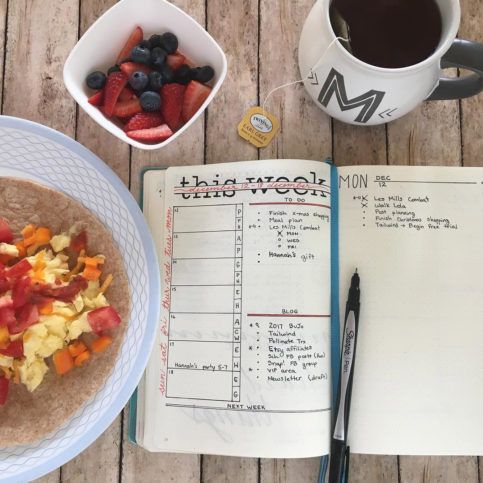 M
TWININGS
EARL GREY
this week
december 12 - 18 december
TO DO
Finish x-mas shopping
Meal plan
Les Mills Combat
MON
WED
FRI
Hannah's gift
BLOG
2017 BuJo
Tailwind
Pollinate Trx
Etsy affiliates
Sch. FB posts
Snap! FB group
VIP area
Newsletter (draft)
NEXT WEEK
sun sat fri thur wed tues mon
12
13
14
15
16
17
Hannah's party 5-7
18
MON
DEC
12
Les Mills Combat
Walk Lola
Post planning
Finish Christmas shopping
Tailwind → Begin free trial
SHARPIE PEN